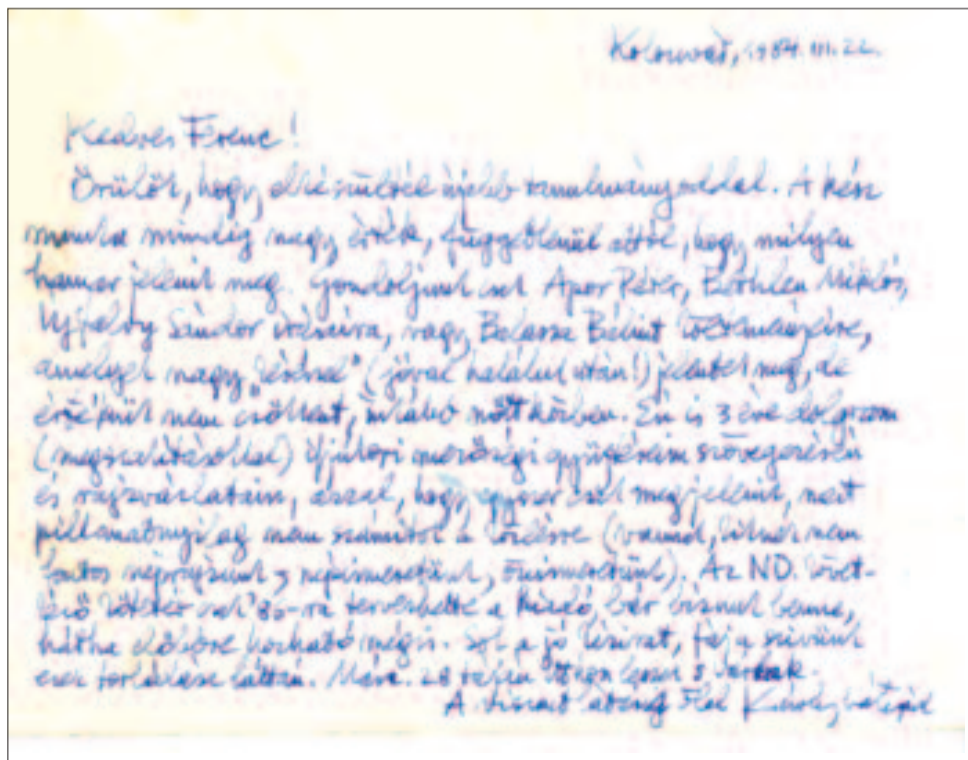 Kolozsvár, 1984. III. 22.
Kedves Ferenc!
Örülök, hogy elkészültél újabb tanulmányoddal. A kész
munka mindig nagy érték, függetlenül attól, hogy milyen
hamar jelenik meg. Gondoljunk csak Apor Péter, Bethlen Miklós,
Ujfalvy Sándor írásaira, vagy Balassa Bálint költeményeire,
amelyek nagy „késéssel” (jóval haláluk után!) jelentek meg, de
értékük nem csökkent, inkább nőtt közben. Én is 3 éve dolgozom
(megszakításokkal) újkori mezőségi gyűjtésem szövegezésén
és rajzvázlatain, azzal, hogy egyszer csak megjelenik, mert
pillanatnyilag nem számítok a közlésre (vannak, kiknek nem
fontos néprajzunk, népismeretünk, önismeretünk). Az ND. követ-
kező kötetét csak '86-ra tervezhette a Kiadó, bár bízunk benne,
hátha előbbre hozható mégis. Sok a jó kézirat, fáj a szívünk
ezek torlódása láttán. Márc. 28 táján itthon leszek
A viszont látásig ölel Károly bátyád